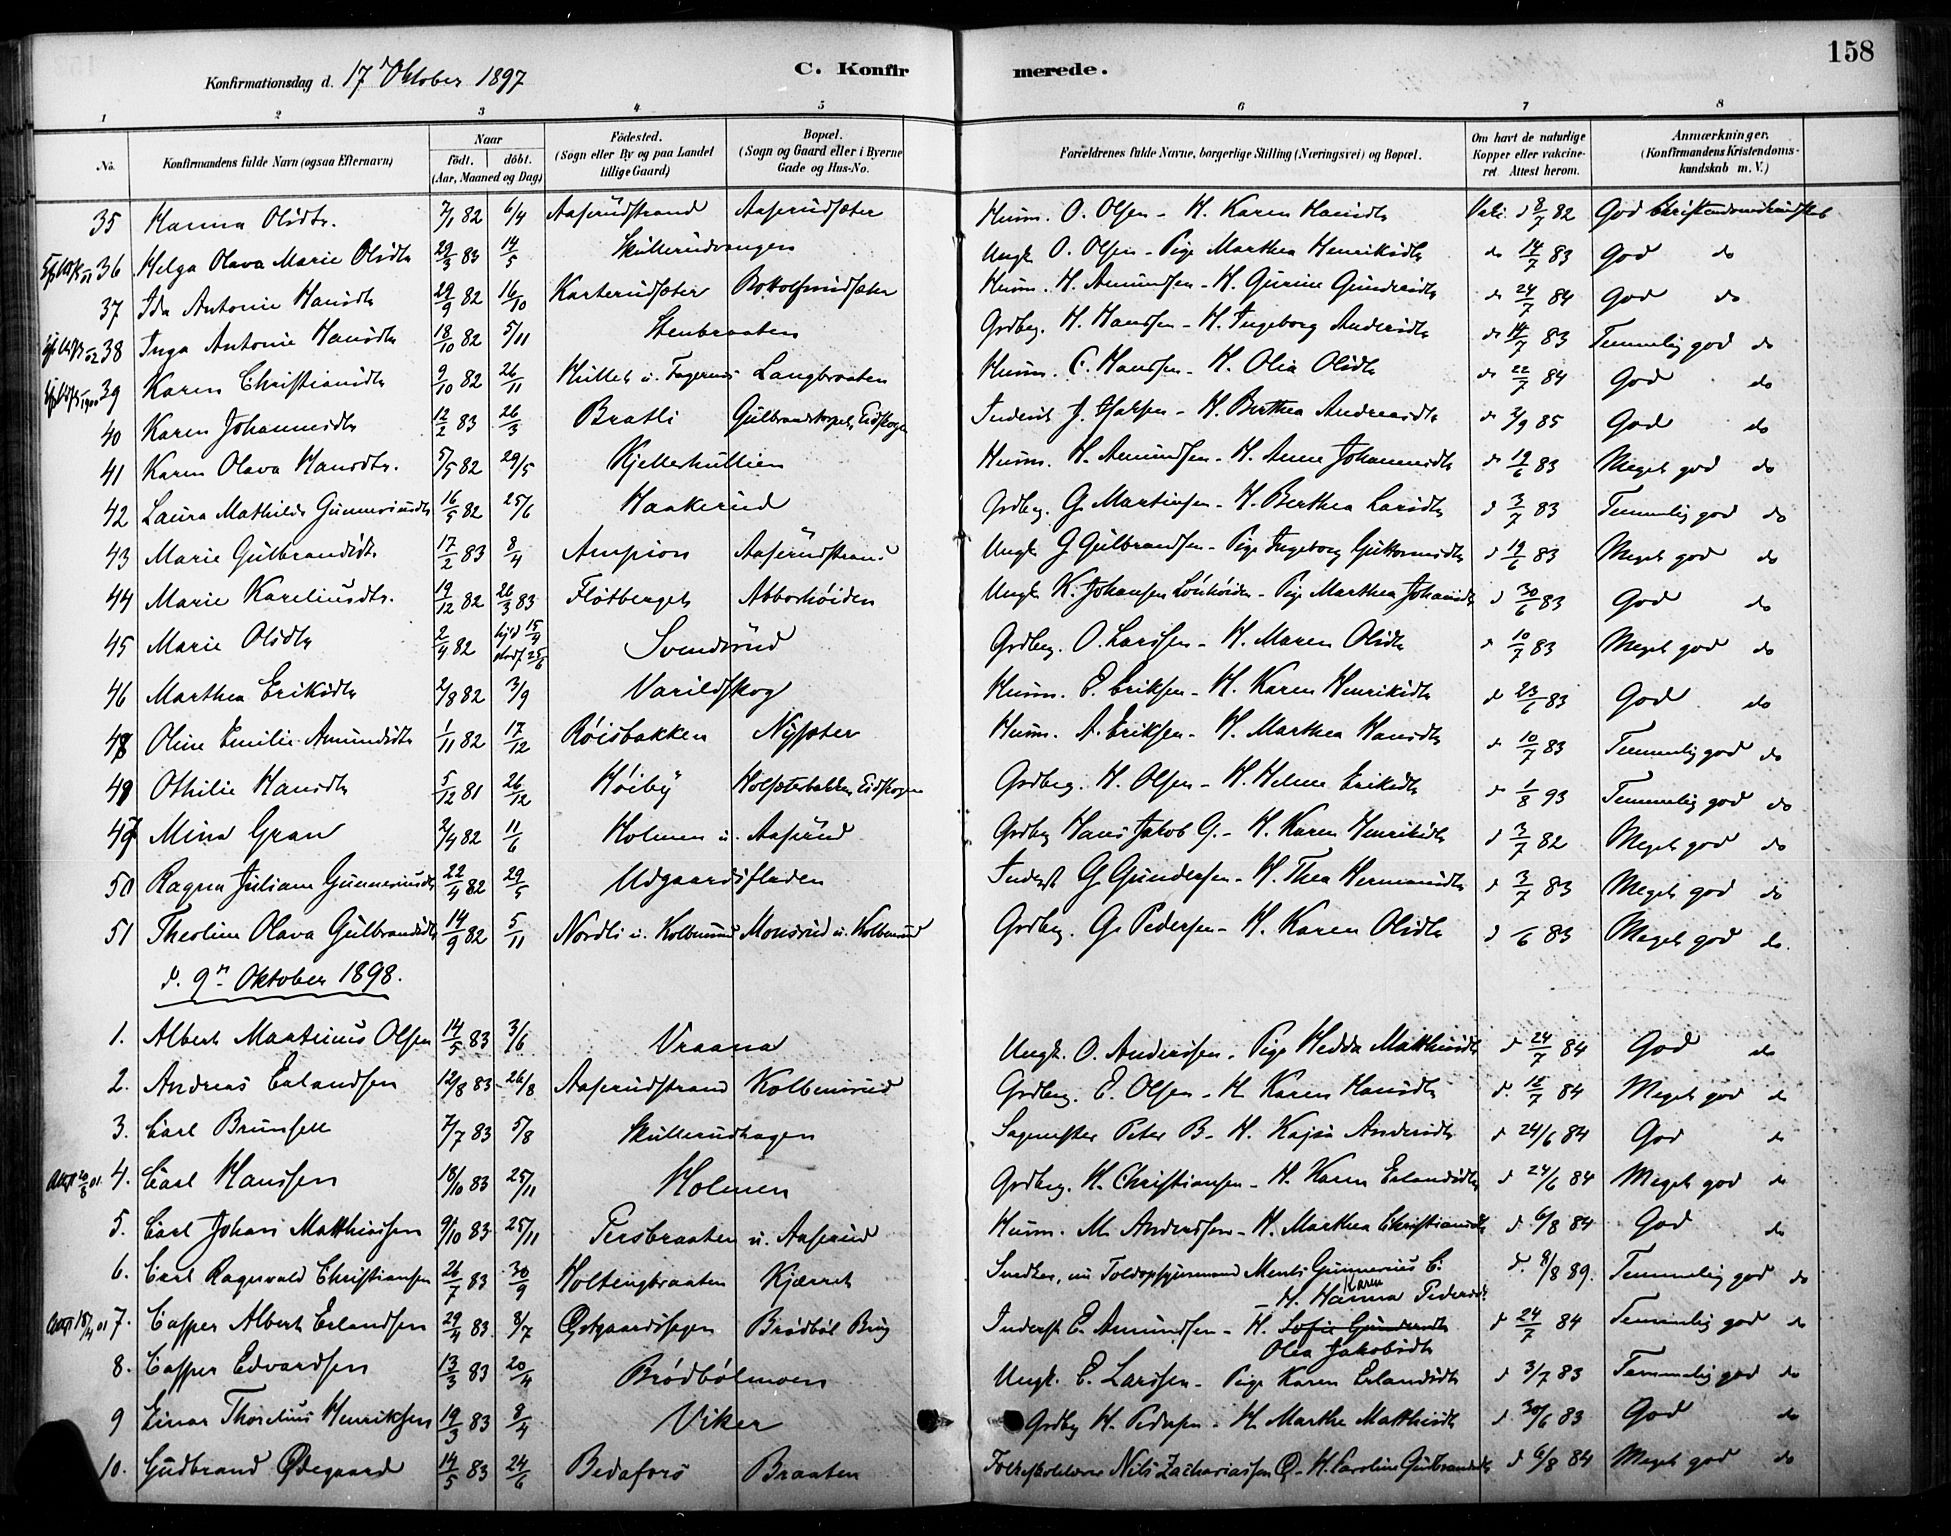 158
Konfirmationsdag d. 17 Oktober 1897 C. Konfirmerede.
1 2 3 4 5 6 7 8
No. Konfirmandens fulde Navn (ogsaa Efternavn) Naar födt. döbt. (Aar, Maaned og Dag) Födested. (Sogn eller By og paa Landet tillige Gaard) Bopæl. (Sogn og Gaard eller i Byerne Gade og Hus-No. Forældrenes fulde Navne, borgerlige Stilling (Næringsvei) og Bopæl. Om havt de naturlige Kopper eller vakcineret. Attest herom. Anmærkninger. (Konfirmandens Kristendomskundskab m. V.)
35 Hanna Olsdtr. 7/1 82 6/4 Aaserudstrand Aaserudsæter Husm. O. Olsen - H. Karen Hansdtr Vak. d 8/7 82 God Christendomskundskab
36 Helga Olava Marie Olsdtr 29/3 83 14/5 Skullerudvangen Ungk. O. Olsen - Pige Marthea Henriksdtr do 14/7 83 God do
37 Ida Antonie Hansdtr 29/9 82 16/10 Karterudsæter Husm. H. Amundsen - H. Gurine Gundersdtr do 24/7 84 God do
38 Inga Antonie Hansdtr 18/10 82 5/11 Stenbraaten Grdbrg. H. Hanssen - H. Ingeborg Andersdtr do 14/7 83 Temmelig god do
39 Karen Christiansdtr 9/10 82 26/11 Hullet u. Fagernes Langbraaten Husm. C. Hanssen - H. Olia Olsdtr do 22/7 84 God do
40 Karen Johannesdtr 12/2 83 26/3 Bratli Eidskogen Inderst J. - H. Berthea Andreasdtr d 2/9 85 God do
41 Karen Olava Hansdtr. 5/5 82 29/5 Kjellerhullien Husm. H. Amundsen - H. Anne Johannesdtr d 19/6 83 Meget god do
42 Laura Mathilde Gunneriusdtr 16/5 82 25/6 Haakerud Grdbrg. G. Martinsen - H. Berthea Larsdtr d 3/7 83 Temmelig god do
43 Marie Gulbrandsdtr 17/2 83 8/4 Ampion Aaserudstrand Ungk. G Gulbrandsen - Pige Ingeborg Guttormsdtr d 19/6 83 Meget god do
44 Marie Kareliusdtr. 19/12 82 26/3 83 Fløtberget Abborhøiden Ungk K. Johansen Lönhöiden - Pige Marthea Johansdtr d 30/6 83 God do
45 Marie Olsdtr 2/4 82 hjd 15/4 stadf 25/6 Svendsrud Grdbrg. O. Larssen - H. Maren Olsdtr d 10/7 83 Meget god do
46 Marthea Eriksdtr 2/8 82 3/9 Varildskog Husm. E. Eriksen - H. Karen Henriksdtr d 23/6 83 God do
48 Oline Emilie Amundsdtr 1/11 82 17/12 Røisbakken Nysæter Husm. A. Eriksen - H. Marthea Hansdtr d 10/7 83 Temmelig god do
49 Othilie Hansdtr 5/12 81 26/12 Høiby Holsæterbakken Eidskogen Grdbrg. H. Olsen - H. Helene Eriksdtr d 1/8 93 Temmelig god do
47 Mina Gran 2/4 82 11/6 Holmen u. Aaserud Grdbrg Hans Jakob G. - H. Karen Henriksdtr d 3/7 82 Meget god do
50 Ragna Juliane Gunneriusdtr 22/4 82 29/5 Udgaardsfladen Inderst G. Gundersen - H. Thea Hermansdtr d 3/7 83 Meget god do
51 Theoline Olava Gulbrandsdtr 14/9 82 5/11 Nordli u. Kolbensrud Monsrud u. Kolbensrud Grdbrg. G. Pedersen - H. Karen Olsdtr d /6 83 Meget god do.
d. 9n Oktober 1898.
1. Albert Martinius Olsen 14/5 83 3/6 Vraana Ungk. O. Anderssen - Pige Hedda Matthisdtr d 24/7 84 God do
2. Andreas Erlandsen 12/8 83 26/8 Aaserudstrand Kolbensrud Grdbrg. E. Olsen - H. Karen Hansdtr d. 18/7 84 Meget god do
3. Carl Brunsell 7/7 83 5/8 Skullerudhagen Sagmester Peter B - H. Kajsa Andersdtr d 24/6 84 God do
4. Carl Hanssen 18/10 83 25/11 Holmen Grdbrg. H. Christiansen - H. Karen Erlandsdtr d 24/6 84 Meget god do
5. Carl Johan Matthiassen 9/10 83 25/11 Persbraaten u. Aaserud Husm. M. Anderssen - H. Marthea Christiansdtr d. 6/8 84 God do
6. Carl Ragnvald Christiansen 26/7 83 30/9 Holtingbraaten Kjærret Snedker, nu Toldopsynsmand Ments Gunnerius C. - H. Hanna Karen Pedersdtr d. 9/8 89. Temmelig god do
7. Casper Albert Erlandsen 29/4 83 8/7 Østgaardsegen Brødbøl Brug Inderst E. Amundsen - H. Sofie Gundersdtr Olea Jakobsdtr d 24/7 84 Temmelig god do
8. Casper Edvardsen 13/3 83 20/4 Brødbølmoen Ungk. E. Larssen - Pige Karen Erlandsdtr d 3/7 83 Temmelig god do
9 Einar Thorelius Henriksen 19/3 83 8/4 Viker Grdbrg H. Pedersen - H. Marthe Matthisdtr d. 30/6 83 God do
10. Gudbrand Ødegaard 14/5 83 24/6 Bedafors Braaten Folkeskolelærer Nils Zachariassen Ø - H. Caroline Gulbrandsdtr d 6/8 84 Meget god do